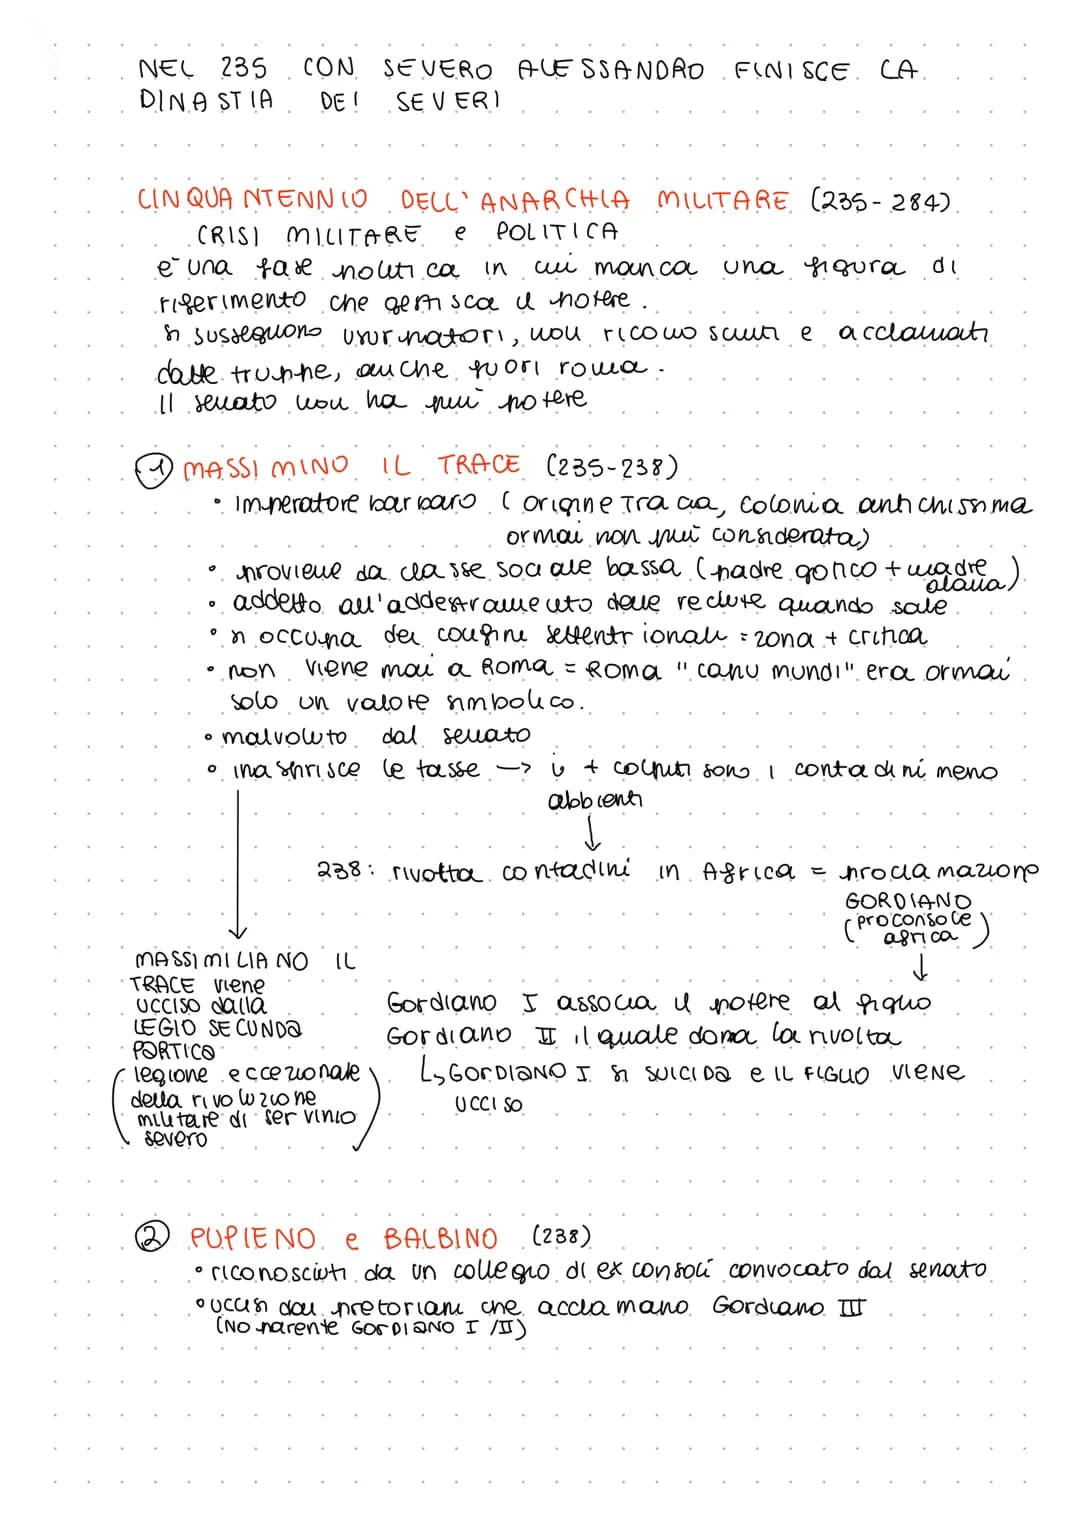 NEL 235 CON SEVERO ALESSANDRO FINISCE LA
DINASTIA DEI SEVERI
CINQUANTENNIO DELL'ANARCHIA MILITARE (235-284)
CRISI MILITARE e POLITICA
è una fase politica in cui manca una figura di
riferimento che gestisca il potere.
si susseguono usurpatori, non riconosciuti e acclamati
dalle truppe, anche fuori roma.
Il senato non ha più potere
1 MASSIMINO IL TRACE (235-238)
• Imperatore barbaro (origine Tracia, colonia antichissima
ormai non più considerata)
• proviene da classe sociale bassa (padre gotico + madre
alana)
• addetto all'addestramento delle reclute quando sale
• si occupa dei confini settentrionali = zona + critica
• non viene mai a Roma = Roma "caput mundi" era ormai
solo un valore simbolico.
• malvoluto dal senato
• inasprisce le tasse → i + colpiti sono i contadini meno
abbienti
↓
238: rivolta contadini in Africa = proclamazione
GORDIANO
(proconsole
africa)
↓
MASSIMILIANO IL
TRACE viene
ucciso dalla
LEGIO SECUNDA
PORTICA
(legione eccezionale
della rivoluzione
militare di servinio
severo)
Gordiano I associa il potere al figlio
Gordiano II il quale doma la rivolta
↳ GORDIANO I si SUICIDA e IL FIGLIO VIENE
UCCISO
2 PUPIENO e BALBINO (238)
• riconosciuti da un collegio di ex consoli convocato dal senato
• uccisi dai pretoriani che acclamano Gordiano III
(NO parente GORDIANO I/II)